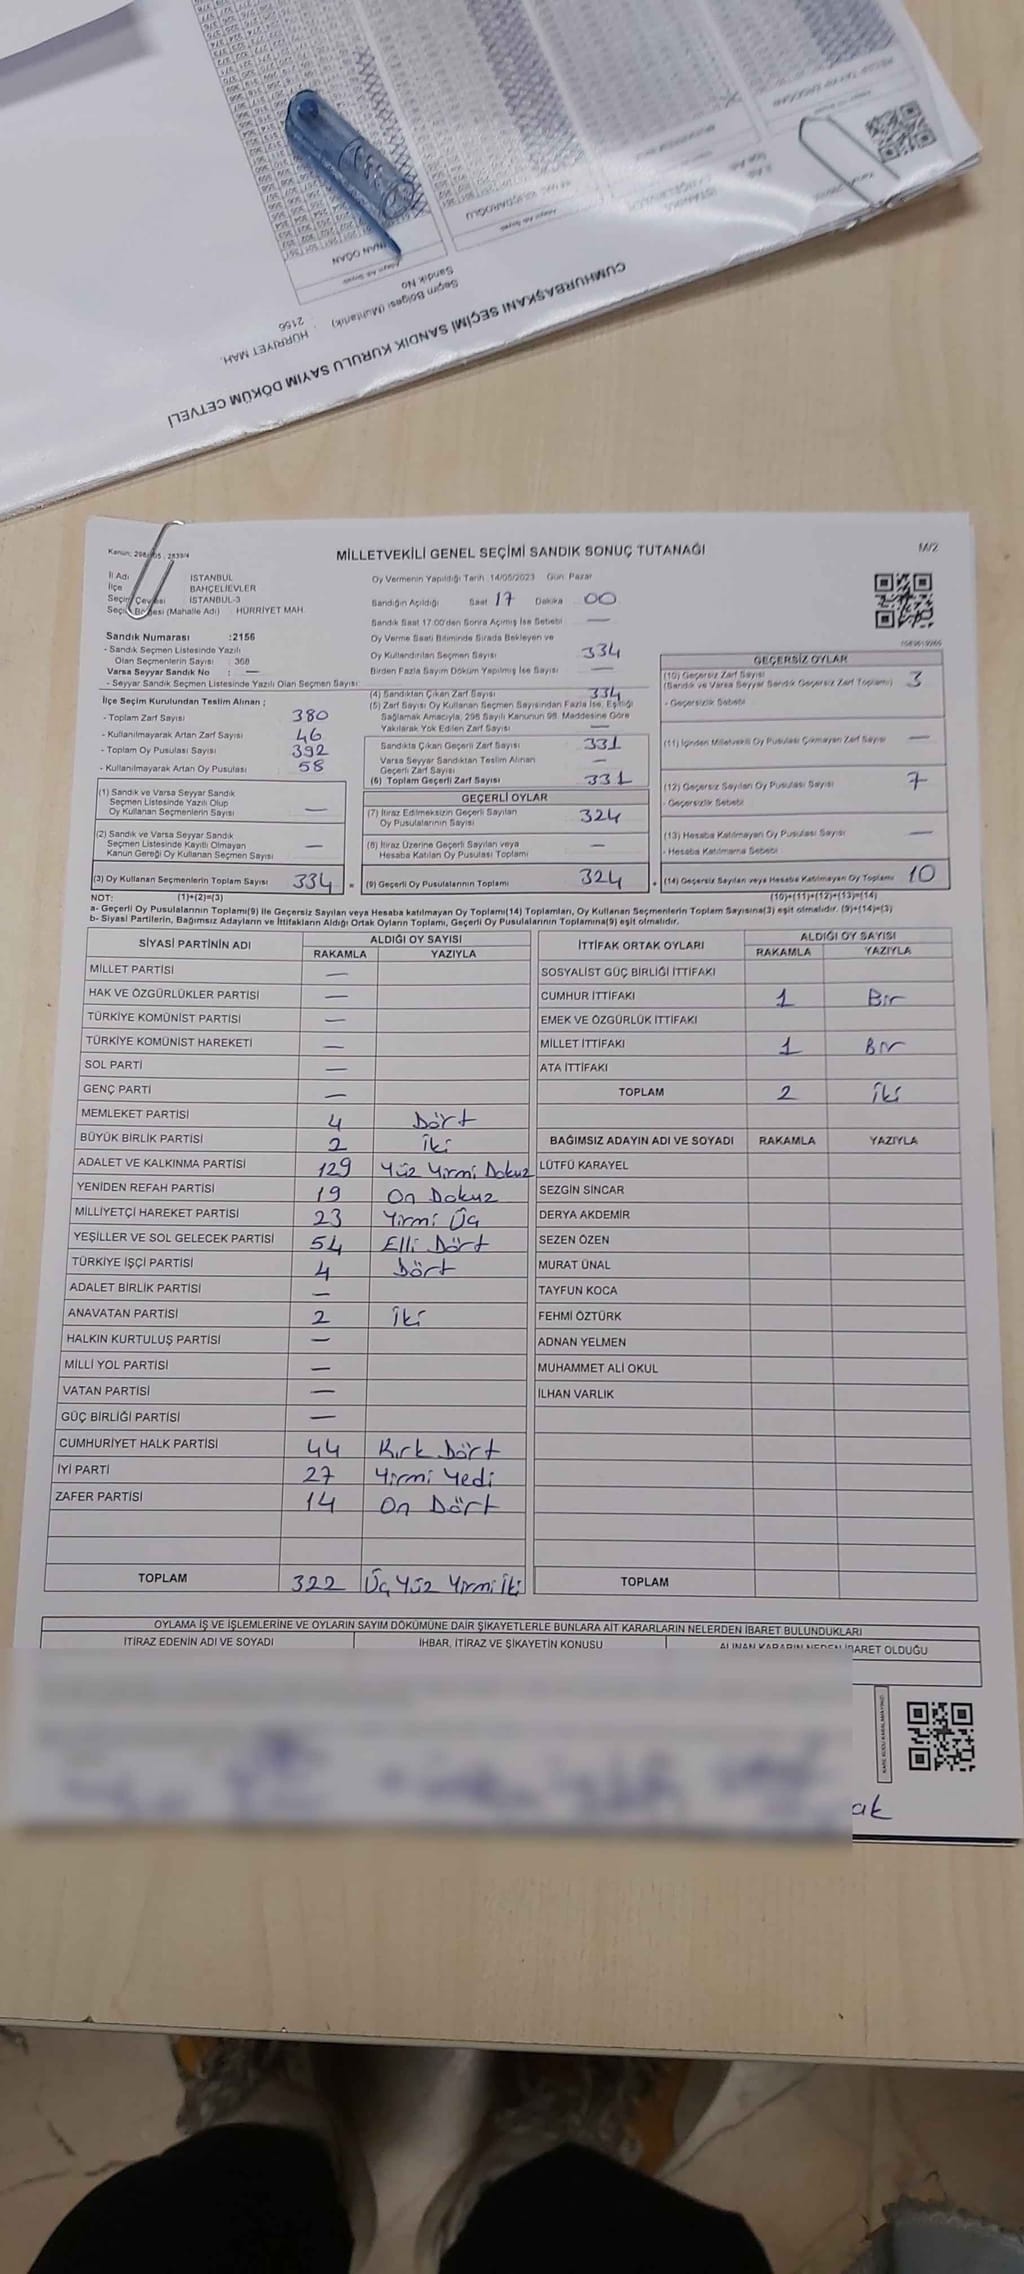 CUMHURBAŞKANI SEÇİMİ SANDIK KURULU SAYIM DÖKÜM CETVELİ
Seçim Bölgesi (Muhtarlık) : HÜRRİYET MAH.
Sandık No : 2156
Adayın Adı Soyadı
OĞAN
MİLLETVEKİLİ GENEL SEÇİMİ SANDIK SONUÇ TUTANAĞI
M/2
İl Adı : İSTANBUL
İlçe : BAHÇELİEVLER
Seçim Çevresi : İSTANBUL-3
Seçim Bölgesi (Mahalle Adı) : HÜRRİYET MAH.
Sandık Numarası :2156
- Sandık Seçmen Listesinde Yazılı
Olan Seçmenlerin Sayısı : 368
Varsa Seyyar Sandık No : —
- Seyyar Sandık Seçmen Listesinde Yazılı Olan Seçmen Sayısı:
İlçe Seçim Kurulundan Teslim Alınan ;
- Toplam Zarf Sayısı 380
- Kullanılmayarak Artan Zarf Sayısı 46
- Toplam Oy Pusulası Sayısı 392
- Kullanılmayarak Artan Oy Pusulası 58
(1) Sandık ve Varsa Seyyar Sandık
Seçmen Listesinde Yazılı Olup
Oy Kullanan Seçmenlerin Sayısı —
(2) Sandık ve Varsa Seyyar Sandık
Seçmen Listesinde Kayıtlı Olmayan
Kanun Gereği Oy Kullanan Seçmen Sayısı —
(3) Oy Kullanan Seçmenlerin Toplam Sayısı 334
Oy Vermenin Yapıldığı Tarih :14/05/2023 Gün: Pazar
Sandığın Açıldığı Saat 17 Dakika 00
Sandık Saat 17.00'den Sonra Açılmış İse Sebebi —
Oy Verme Saati Bitiminde Sırada Bekleyen ve
Oy Kullandırılan Seçmen Sayısı 334
Birden Fazla Sayım Döküm Yapılmış İse Sayısı —
(4) Sandıktan Çıkan Zarf Sayısı 334
(5) Zarf Sayısı Oy Kullanan Seçmen Sayısından Fazla İse, Eşitliği
Sağlamak Amacıyla, 298 Sayılı Kanunun 98. Maddesine Göre
Yakılarak Yok Edilen Zarf Sayısı —
Sandıkta Çıkan Geçerli Zarf Sayısı 331
Varsa Seyyar Sandıktan Teslim Alınan
Geçerli Zarf Sayısı —
(6) Toplam Geçerli Zarf Sayısı 331
GEÇERLİ OYLAR
(7) İtiraz Edilmeksizin Geçerli Sayılan
Oy Pusulalarının Sayısı 324
(8) İtiraz Üzerine Geçerli Sayılan veya
Hesaba Katılan Oy Pusulası Toplamı —
(9) Geçerli Oy Pusulalarının Toplamı 324
GEÇERSİZ OYLAR
(10) Geçersiz Zarf Sayısı 3
(Sandık ve Varsa Seyyar Sandık Geçersiz Zarf Toplamı)
- Geçersizlik Sebebi
(11) İçinden Milletvekili Oy Pusulası Çıkmayan Zarf Sayısı —
(12) Geçersiz Sayılan Oy Pusulası Sayısı 7
- Geçersizlik Sebebi
(13) Hesaba Katılmayan Oy Pusulası Sayısı —
- Hesaba Katılmama Sebebi
(14) Geçersiz Sayılan veya Hesaba Katılmayan Oy Toplamı 10
NOT: (1)+(2)=(3) (10)+(11)+(12)+(13)=(14)
a- Geçerli Oy Pusulalarının Toplamı(9) ile Geçersiz Sayılan veya Hesaba katılmayan Oy Toplamı(14) Toplamları, Oy Kullanan Seçmenlerin Toplam Sayısına(3) eşit olmalıdır. (9)+(14)=(3)
b- Siyasi Partilerin, Bağımsız Adayların ve İttifakların Aldığı Ortak Oyların Toplamı, Geçerli Oy Pusulalarının Toplamına(9) eşit olmalıdır.
SİYASİ PARTİNİN ADI ALDIĞI OY SAYISI
RAKAMLA YAZIYLA
MİLLET PARTİSİ —
HAK VE ÖZGÜRLÜKLER PARTİSİ —
TÜRKİYE KOMÜNİST PARTİSİ —
TÜRKİYE KOMÜNİST HAREKETİ —
SOL PARTİ —
GENÇ PARTİ —
MEMLEKET PARTİSİ 4 Dört
BÜYÜK BİRLİK PARTİSİ 2 İki
ADALET VE KALKINMA PARTİSİ 129 Yüz Yirmi Dokuz
YENİDEN REFAH PARTİSİ 19 On Dokuz
MİLLİYETÇİ HAREKET PARTİSİ 23 Yirmi Üç
YEŞİLLER VE SOL GELECEK PARTİSİ 54 Elli Dört
TÜRKİYE İŞÇİ PARTİSİ 4 Dört
ADALET BİRLİK PARTİSİ —
ANAVATAN PARTİSİ 2 İki
HALKIN KURTULUŞ PARTİSİ —
MİLLİ YOL PARTİSİ —
VATAN PARTİSİ —
GÜÇ BİRLİĞİ PARTİSİ —
CUMHURİYET HALK PARTİSİ 44 Kırk Dört
İYİ PARTİ 27 Yirmi Yedi
ZAFER PARTİSİ 14 On Dört
TOPLAM 322 Üç Yüz Yirmi İki
İTTİFAK ORTAK OYLARI ALDIĞI OY SAYISI
RAKAMLA YAZIYLA
SOSYALİST GÜÇ BİRLİĞİ İTTİFAKI
CUMHUR İTTİFAKI 1 Bir
EMEK VE ÖZGÜRLÜK İTTİFAKI
MİLLET İTTİFAKI 1 Bir
ATA İTTİFAKI
TOPLAM 2 İki
BAĞIMSIZ ADAYIN ADI VE SOYADI RAKAMLA YAZIYLA
LÜTFÜ KARAYEL
SEZGİN SİNCAR
DERYA AKDEMİR
SEZEN ÖZEN
MURAT ÜNAL
TAYFUN KOCA
FEHMİ ÖZTÜRK
ADNAN YELMEN
MUHAMMET ALİ OKUL
İLHAN VARLIK
TOPLAM
OYLAMA İŞ VE İŞLEMLERİNE VE OYLARIN SAYIM DÖKÜMÜNE DAİR ŞİKAYETLERLE BUNLARA AİT KARARLARIN NELERDEN İBARET BULUNDUKLARI
İTİRAZ EDENİN ADI VE SOYADI İHBAR, İTİRAZ VE ŞİKAYETİN KONUSU ALINAN KARARIN NEDEN İBARET OLDUĞU
ak